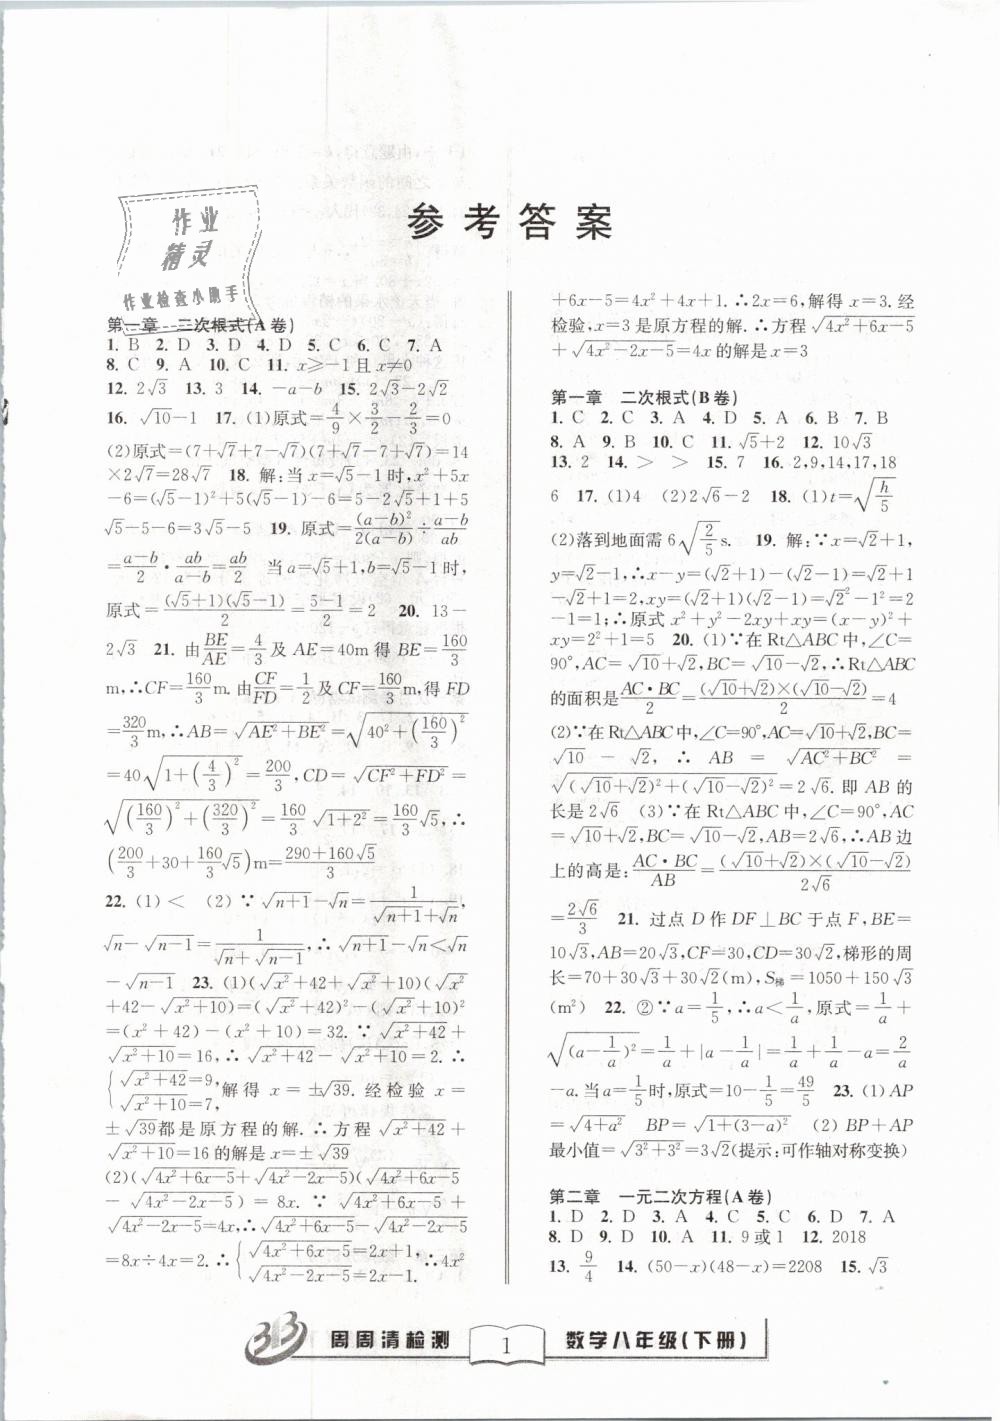 参考答案
作业
精灵
作业检查小助手
第一章 二次根式(A卷)
1. B 2. D 3. D 4. D 5. C 6. C 7. A
8. C 9. A 10. C 11. x≥-1且x≠0
12. 2√3 13. 3 14. -a-b 15. 2√3-2√2
16. √10-1 17. (1)原式=4/9×3/2-2/3=0
(2)原式=(7+√7+7-√7)(7+√7-7+√7)=14
×2√7=28√7 18. 解:当x=√5-1时,x²+5x
-6=(√5-1)²+5(√5-1)-6=5-2√5+1+5
√5-5-6=3√5-5 19. 原式=(a-b)²/2(a-b)÷(a-b)/ab
=(a-b)/2·ab/(a-b)=ab/2 当a=√5+1,b=√5-1时,
原式=(√5+1)(√5-1)/2=(5-1)/2=2 20. 13-
2√3 21. 由BE/AE=4/3及AE=40m得BE=160/3
m,∴CF=160/3m.由CF/FD=1/2及CF=160/3m,得FD
=320/3m,∴AB=√(AE²+BE²)=√(40²+(160/3)²)
=40√(1+(4/3)²)=200/3,CD=√(CF²+FD²)=
√((160/3)²+(320/3)²)=160/3√(1+2²)=160/3√5,∴
(200/3+30+160/3√5)m=(290+160√5)/3
22. (1)< (2)∵√(n+1)-√n=1/(√(n+1)+√n),
√n-√(n-1)=1/(√n+√(n-1)),∴√(n+1)-√n<√n
-√(n-1) 23. (1)(√(x²+42)+√(x²+10))(√(x²
+42)-√(x²+10))=(√(x²+42))²-(√(x²+10))²
=(x²+42)-(x²+10)=32. ∵√(x²+42)+
√(x²+10)=16,∴√(x²+42)-√(x²+10)=2. ∴
{√(x²+42)=9, √(x²+10)=7, 解得x=±√39. 经检验x=
±√39都是原方程的解.∴方程√(x²+42)+
√(x²+10)=16的解是x=±√39
(2)(√(4x²+6x-5)+√(4x²-2x-5))(√(4x²+6x-5)
-√(4x²-2x-5))=8x. ∵√(4x²+6x-5)+
√(4x²-2x-5)=4x,∴√(4x²+6x-5)-√(4x²-2x-5)
=8x÷4x=2.∴{√(4x²+6x-5)=2x+1, √(4x²-2x-5)=2x-1. ∴4x²
+6x-5=4x²+4x+1.∴2x=6,解得x=3.经
检验,x=3是原方程的解.∴方程√(4x²+6x-5)
+√(4x²-2x-5)=4x的解是x=3
第一章 二次根式(B卷)
1. C 2. C 3. A 4. D 5. A 6. B 7. B
8. A 9. B 10. C 11. √5+2 12. 10√3
13. 2 14. > > 15. 7 16. 2,9,14,17,18
6 17. (1)4 (2)2√6-2 18. (1)t=√(h/5)
(2)落到地面需6√(2/5)s. 19. 解:∵x=√2+1,
y=√2-1,∴x-y=(√2+1)-(√2-1)=√2+1
-√2+1=2,xy=(√2+1)(√2-1)=√2²-1²=2
-1=1;∴原式x²+y²-2xy+xy=(x-y)²+
xy=2²+1=5 20. (1)∵在Rt△ABC中,∠C=
90°,AC=√10+√2,BC=√10-√2,∴Rt△ABC
的面积是AC·BC/2=(√10+√2)×(√10-√2)/2=4
(2)∵在Rt△ABC中,∠C=90°,AC=√10+√2,BC=
√10-√2,∴AB=√(AC²+BC²)=
√((√10+√2)²+(√10-√2)²)=2√6.即AB的
长是2√6 (3)∵在Rt△ABC中,∠C=90°,AC
=√10+√2,BC=√10-√2,AB=2√6,∴AB边
上的高是:AC·BC/AB=(√10+√2)×(√10-√2)/2√6
=2√6/3 21. 过点D作DF⊥BC于点F,BE=
10√3,AB=20√3,CF=30,CD=30√2,梯形的周
长=70+30√3+30√2(m),S梯=1050+150√3
(m²) 22. ②∵a=1/5,∴a<1/a,原式=1/a+
√((a-1/a)²)=1/a+|a-1/a|=1/a+1/a-a=2/a
-a.当a=1/5时,原式=10-1/5=49/5 23. (1)AP
=√(4+a²) BP=√(1+(3-a)²) (2)BP+AP
最小值=√(3²+3²)=3√2(提示:可作轴对称变换)
第二章 一元二次方程(A卷)
1. D 2. D 3. A 4. C 5. C 6. D 7. A
8. D 9. D 10. A 11. 9或1 12. 2018
13. 9/4 14. (50-x)(48-x)=2208 15. √3
周周清检测 1 数学八年级(下册)